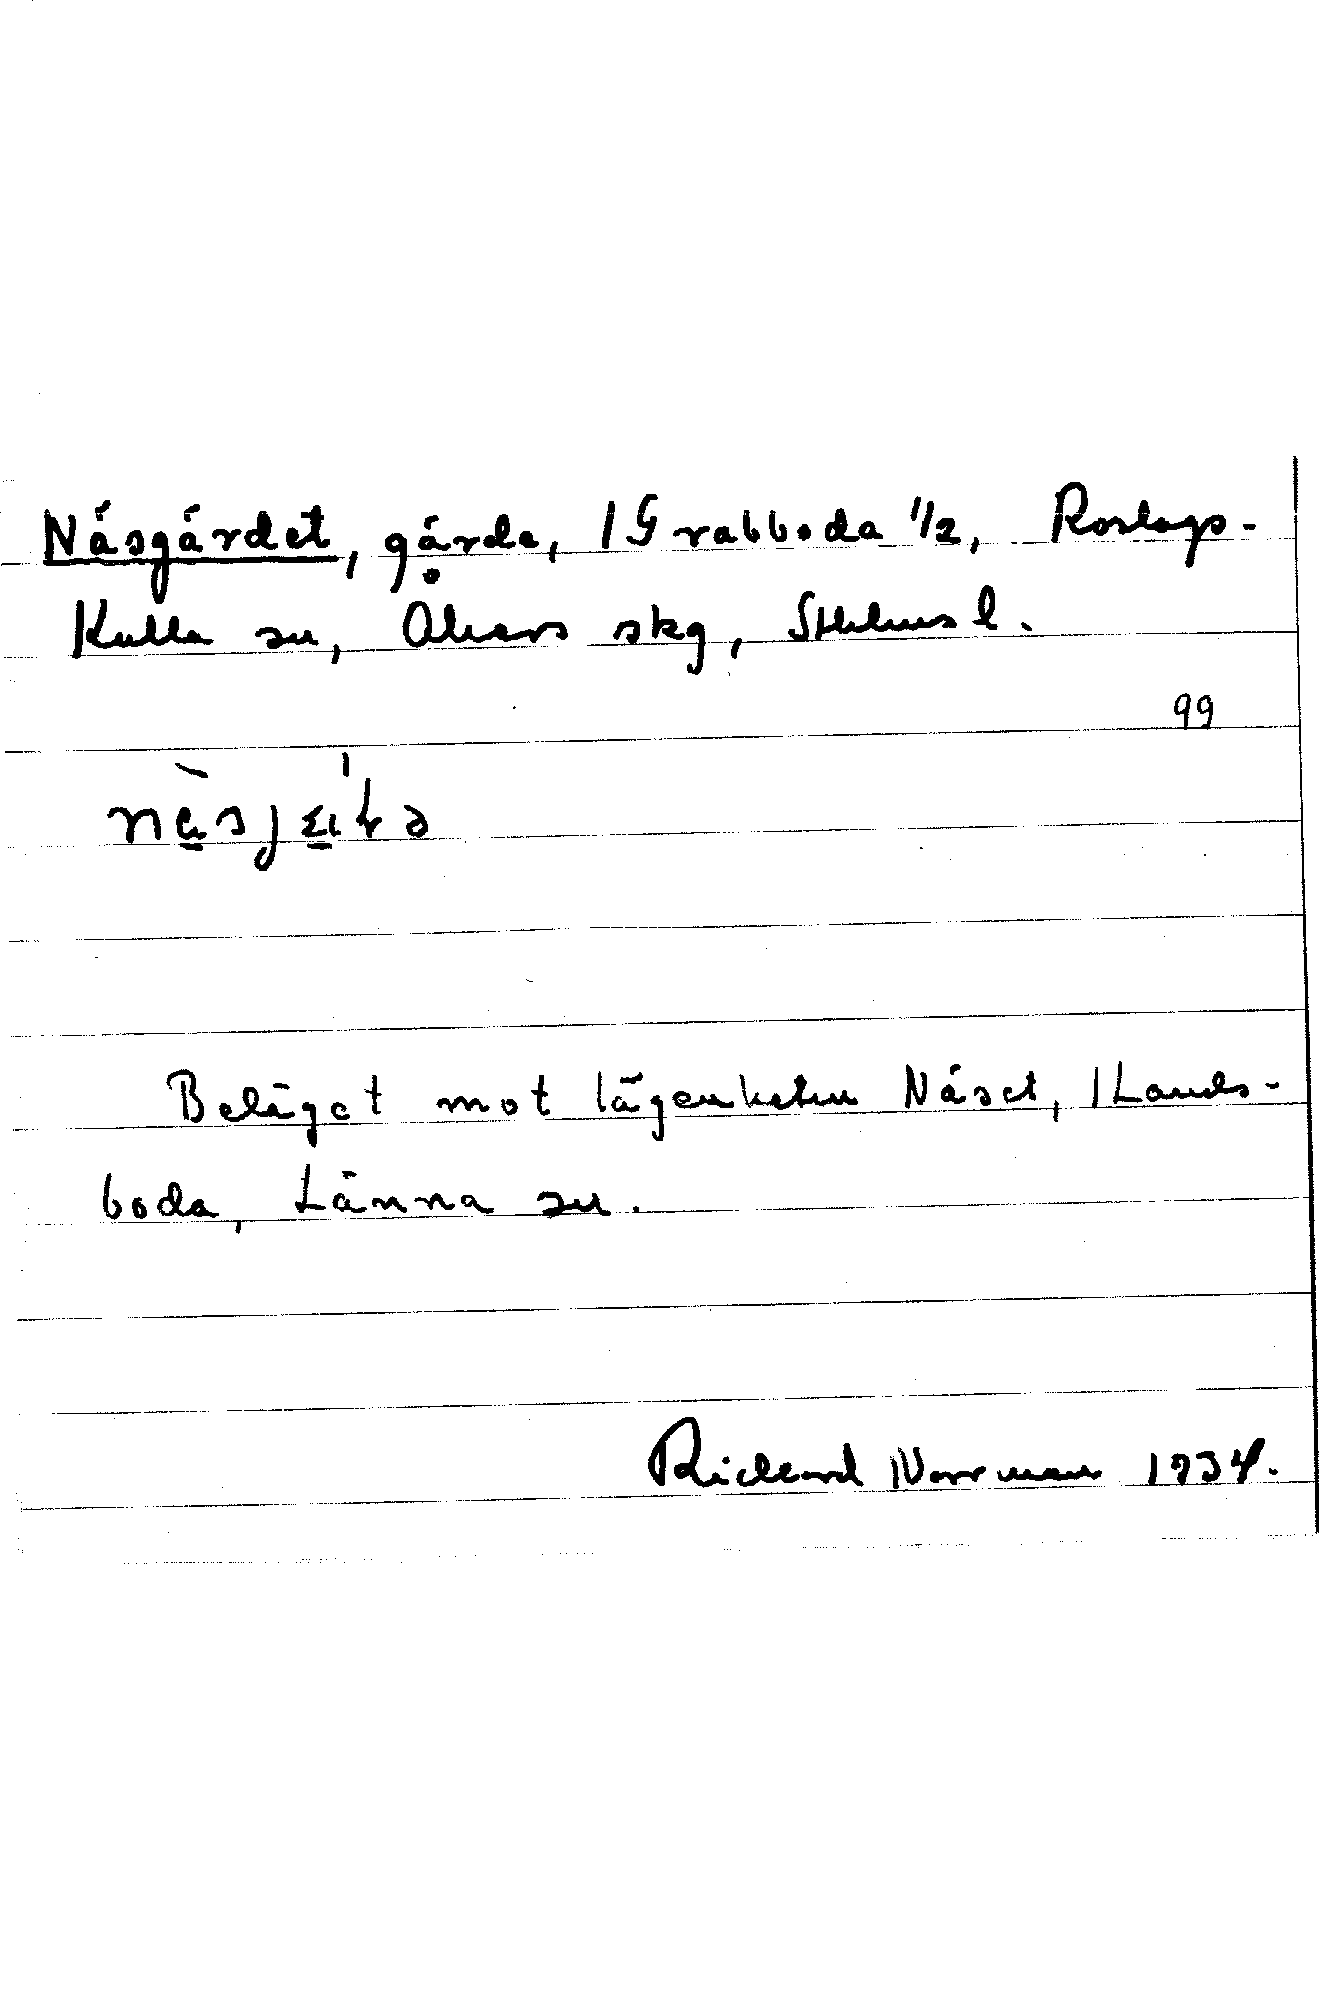 Näsgärdet, gärde, /Grabboda ½, Roslags-
Kulla sn, Åkers skg, Sthlms l.
99
Beläget mot lägenheten Näset, /Lands-
boda, Länna sn.
Rickard Norrman 1934.